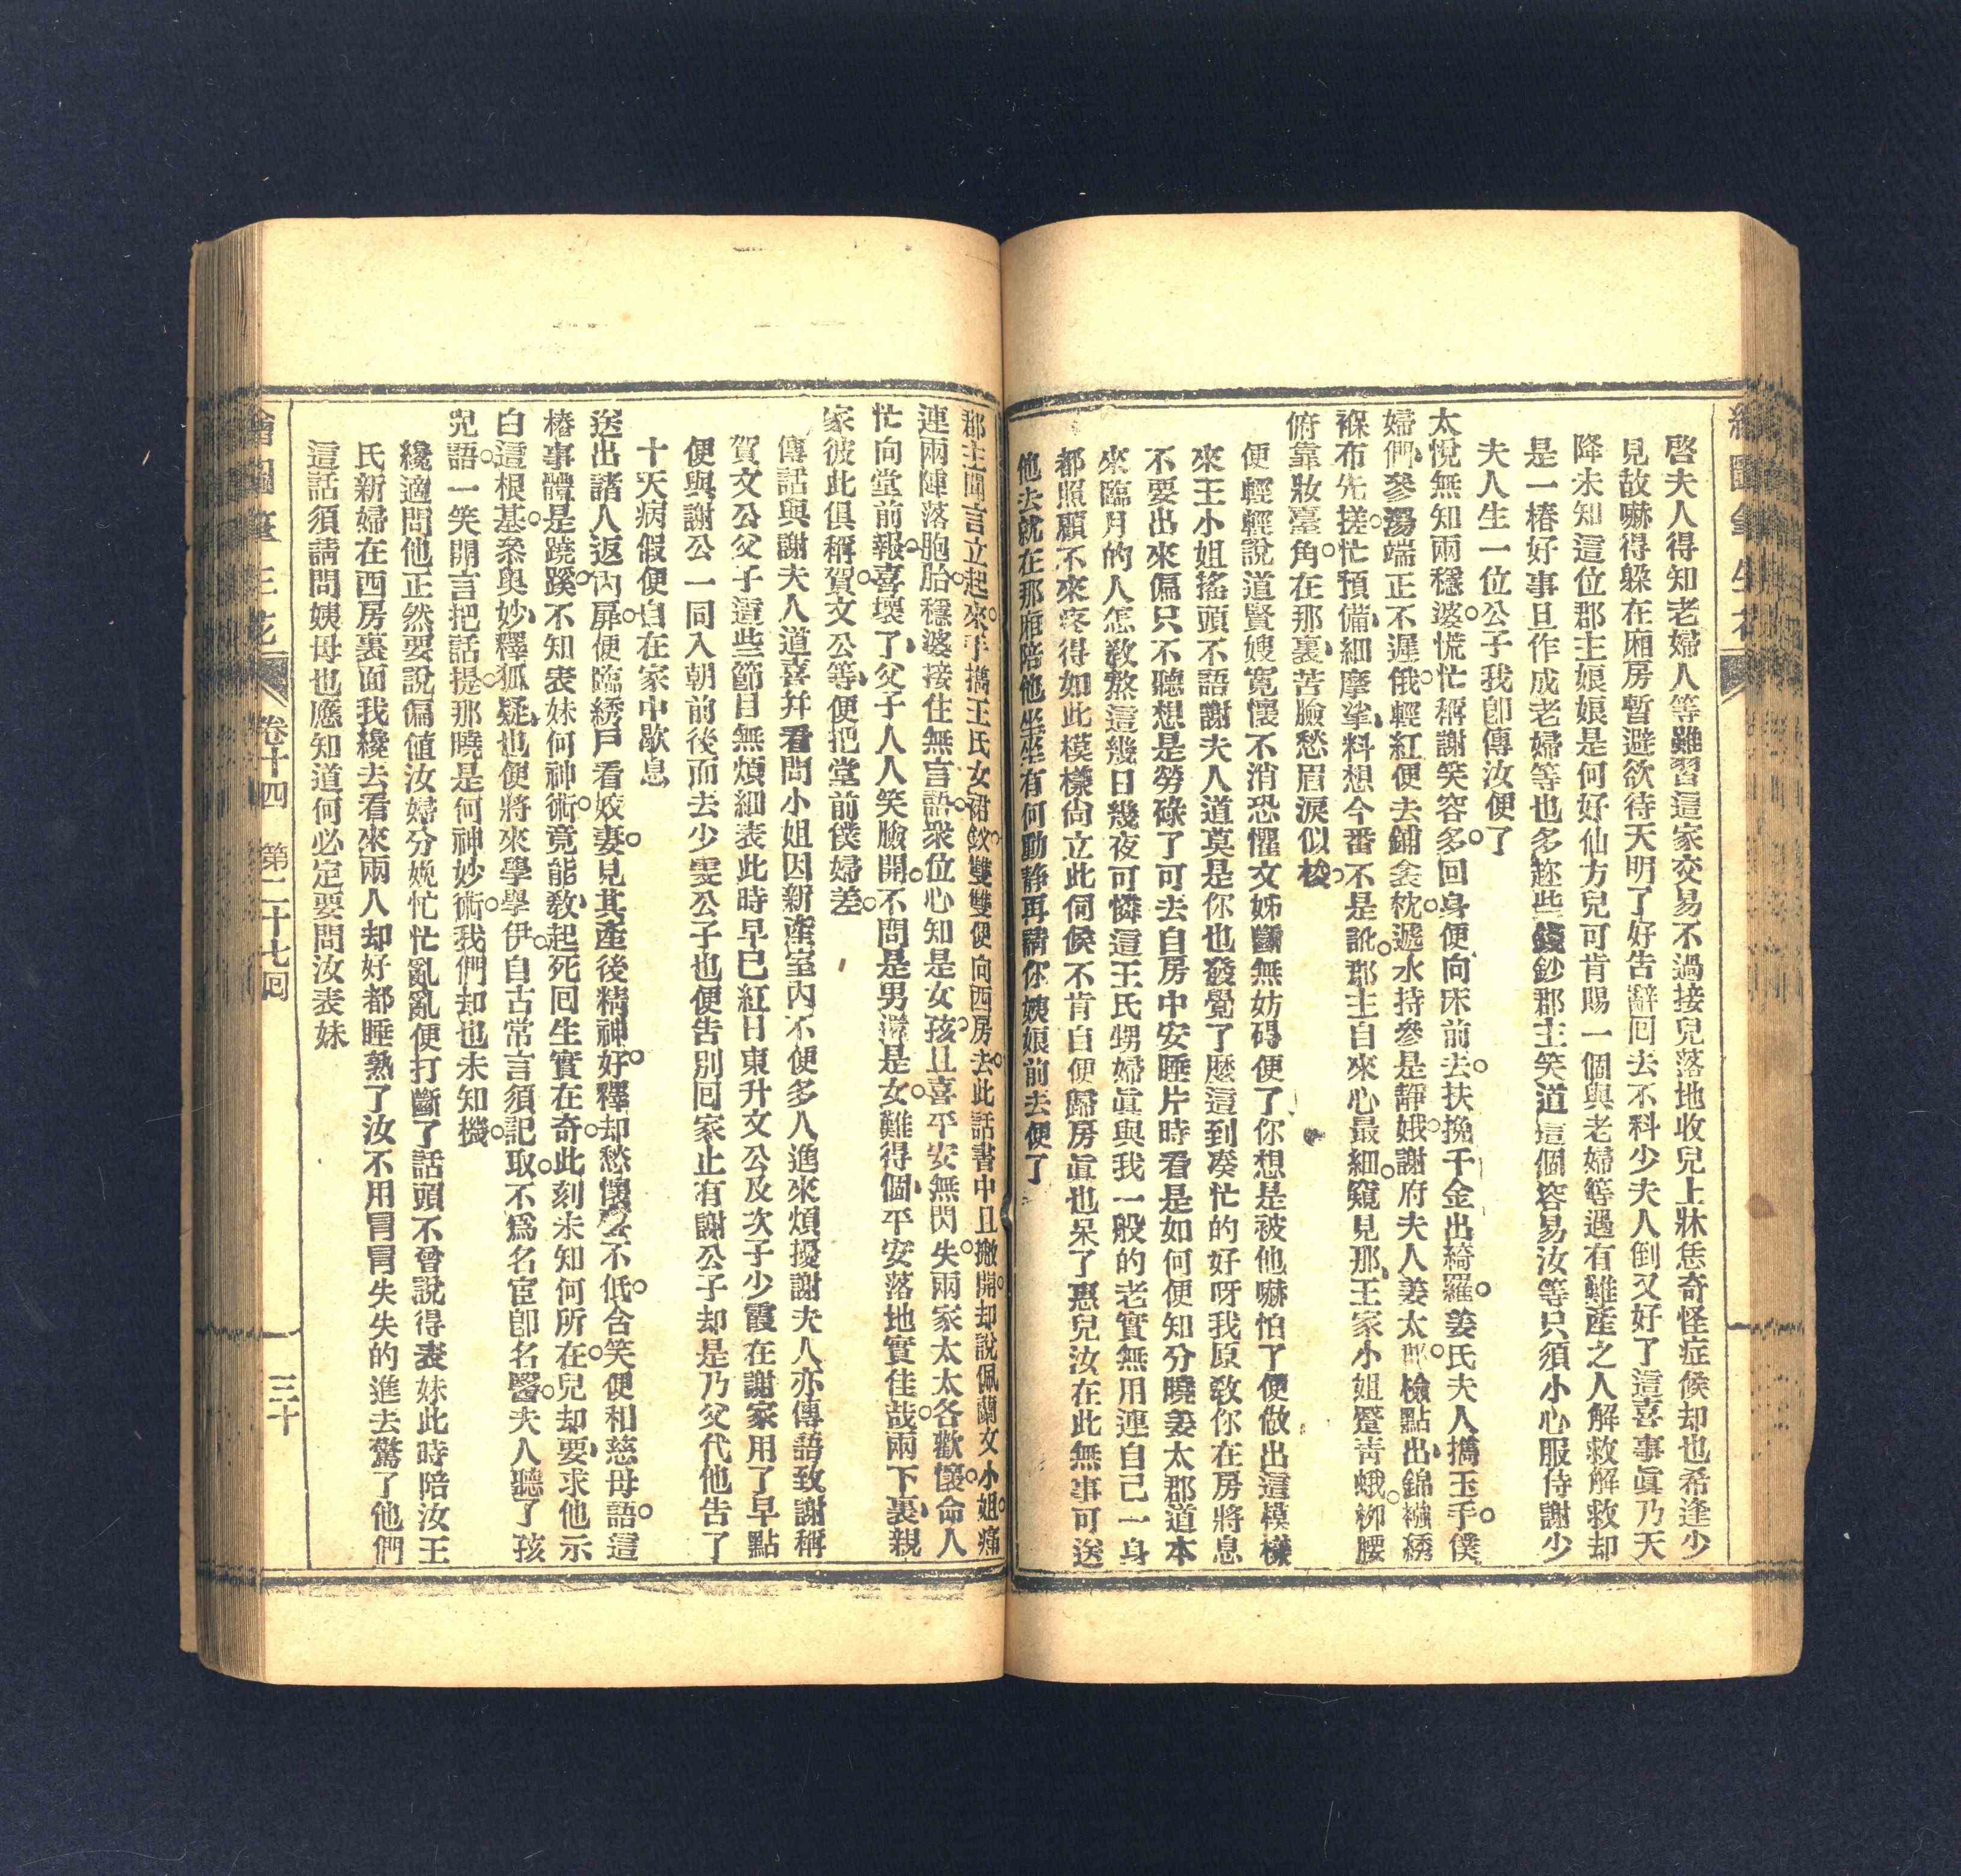 繪圖筆生花
啓夫人得知老婦人等雖習這家交易不過接兒落地收兒上牀恁奇怪症候却也希逢少
見故嚇得躲在廂房暫避欲待天明了好告辭回去不料少夫人倒又好了這喜事眞乃天
降未知這位郡主娘娘是何好仙方兒可肯賜一個與老婦等遇有難產之人解救解救却
是一椿好事且作成老婦等也多趂些錢鈔郡主笑道這個容易汝等只須小心服侍謝少
夫人生一位公子我卽傳汝便了
太悅無知兩穩婆。慌忙稱謝笑容多。回身便向床前去。扶挽千金出綺羅。姜氏夫人攜玉手。僕
婦們、參湯端正不遲俄。輕紅便去鋪衾枕。遞水持參是靜娥。謝府夫人姜太郡。檢點出、錦襁綉
褓布先搓。忙預備、細摩挲、料想今番不是訛。郡主自來心最細。窺見那、王家小姐蹙靑蛾。柳腰
俯靠妝臺角。在那裏、苦臉愁眉淚似梭。
便輕輕說道賢嫂寬懷不消恐懼文姊斷無妨碍便了你想是被他嚇怕了便做出這模樣
來王小姐搖頭不語謝夫人道莫是你也發覺了麽這到凑忙的好呀我原敎你在房將息
不要出來偏只不聽想是勞碌了可去自房中安睡片時看是如何便知分曉姜太郡道本
來臨月的人怎敎熬這幾日幾夜可憐這王氏甥婦眞與我一般的老實無用連自己一身
都照顧不來疼得如此模樣尙立此伺候不肯自便歸房眞也呆了惠兒汝在此無事可送
他去就在那廂陪他坐坐有何動靜再請你姨娘前去便了
郡主聞言立起來。手攜王氏女裙釵。雙雙便向西房去。此話書中且撇開。却說佩蘭文小姐。痛
連兩陣落胞胎。穩婆接住無言語。衆位心知是女孩。且喜平安無閃失。兩家太太各歡懷。命人
忙向堂前報。喜壞了、父子人人笑臉開。不問是男還是女。難得個、平安落地實佳哉。兩下裏、親
家彼此俱稱賀。文公等、便把堂前僕婦差。
傳話與謝夫人道喜幷看問小姐因新產室內不便多人進來煩擾謝夫人亦傳語致謝稱
賀文公父子這些節目無煩細表此時早已紅日東升文公及次子少霞在謝家用了早點
便與謝公一同入朝前後而去少雯公子也便告別回家止有謝公子却是乃父代他告了
十天病假便自在家中歇息
送出諸人返內扉。便臨綉戶看姣妻。見其產後精神好。釋却愁懷去不低。含笑便和慈母語。這
椿事體是蹺蹊。不知表妹何神術。竟能敎、起死回生實在奇。此刻未知何所在。兒却要、求他示
白這根基。叅與妙、釋狐疑、也便將來學學伊。自古常言須記取。不爲名宦卽名醫。夫人聽了孩
兒語。一笑開言把話提。那曉是何神妙術。我們却也未知機。
纔適問他正然要說偏値汝婦分娩忙忙亂亂便打斷了話頭不曾說得表妹此時陪汝王
氏新婦在西房裏面我纔去看來兩人却好都睡熟了汝不用冒冒失失的進去驚了他們
這話須請問姨母也應知道何必定要問汝表妹
繪圖筆生花
卷十四
第二十七回
三十